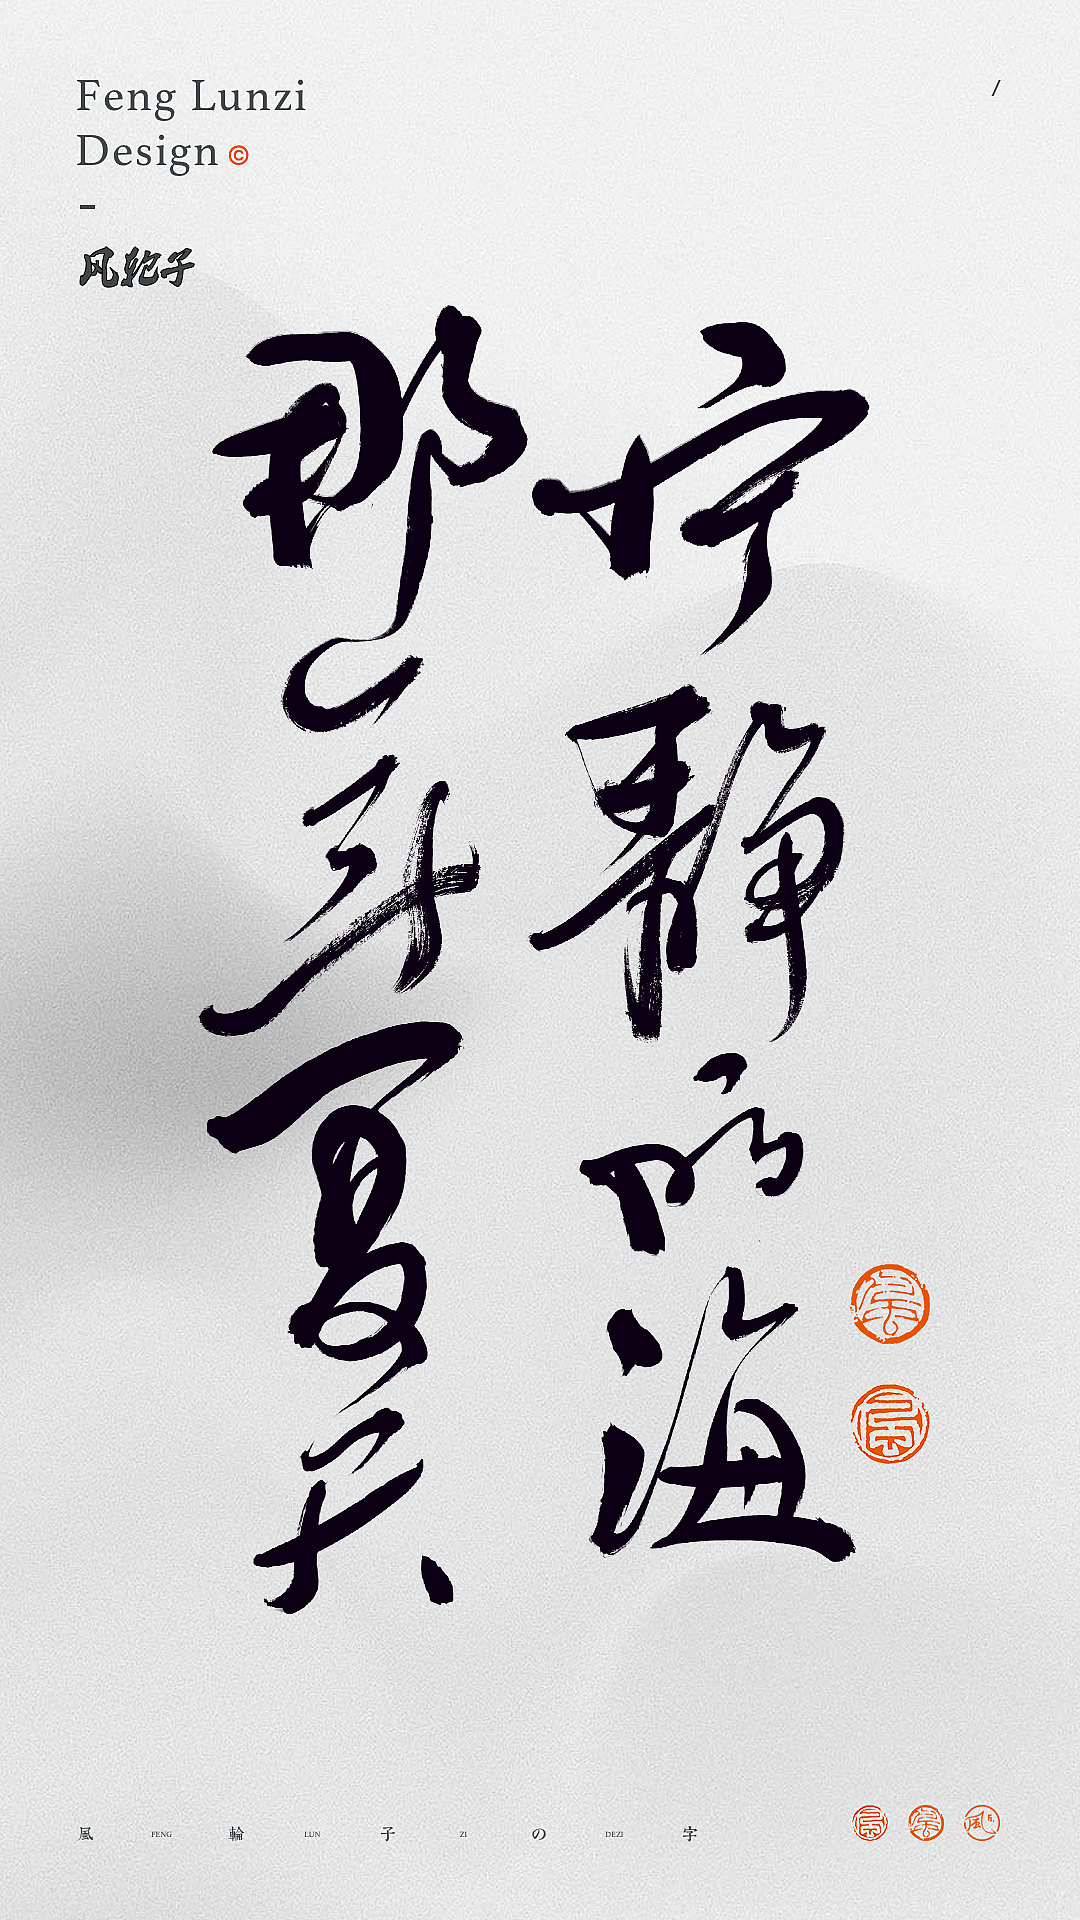 Feng Lunzi
Design©
-
风轮子
/
那年夏天
宁静的海
風 FENG 輪 LUN 子 ZI の DEZI 字